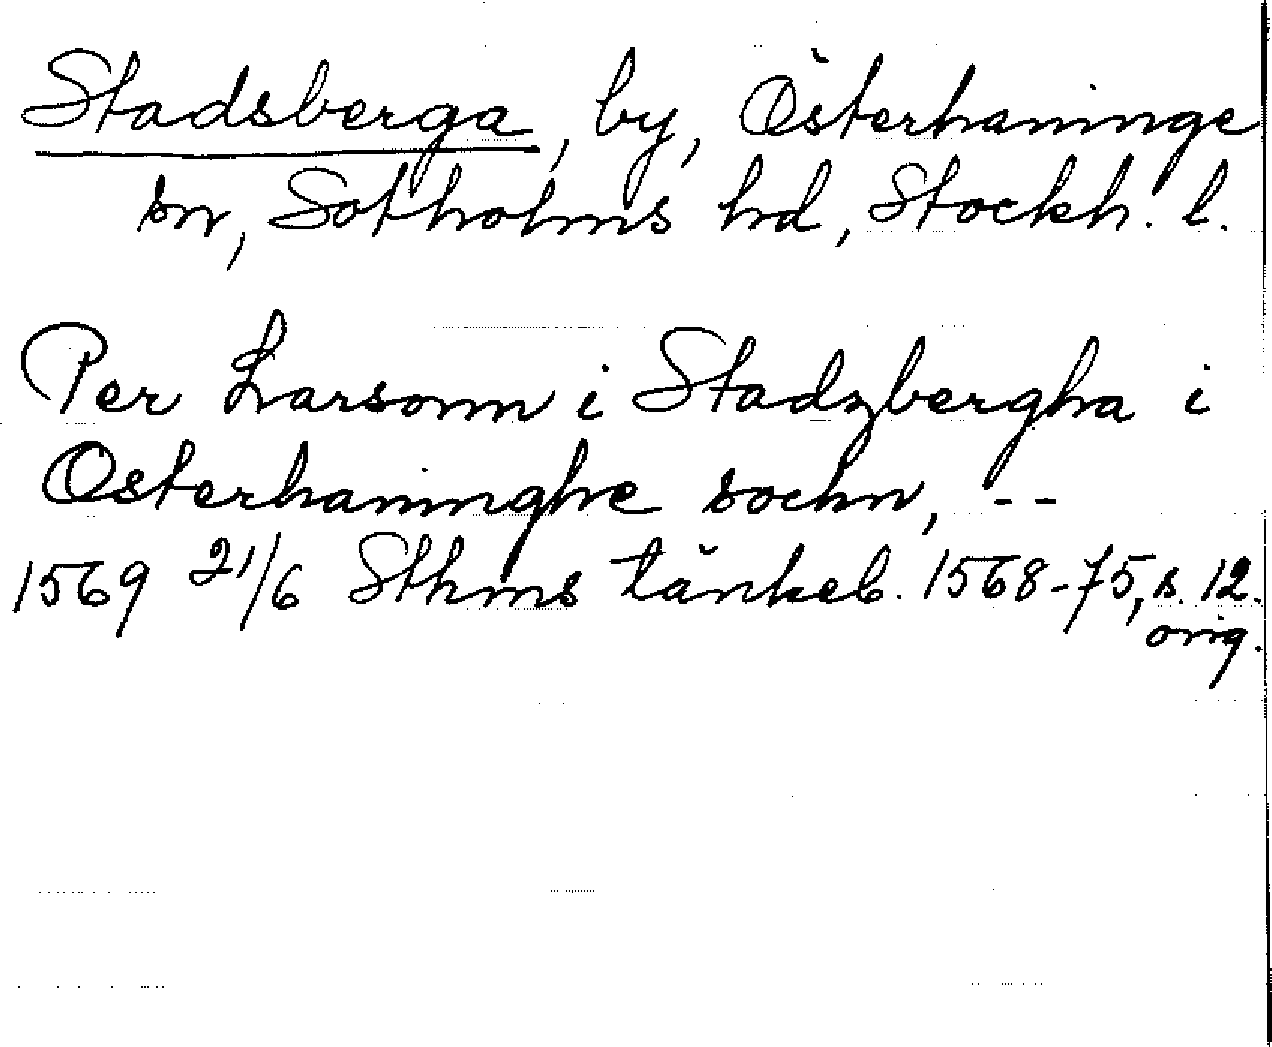 Stadsberga, by, Österhaninge
sn, Sotholms hd, Stockh. l.
Per Larsonn i Stadzbergha i
Osterhaninghe sochn, --
1569 21/6 Sthms tänkeb. 1568-75, s. 12.
orig.